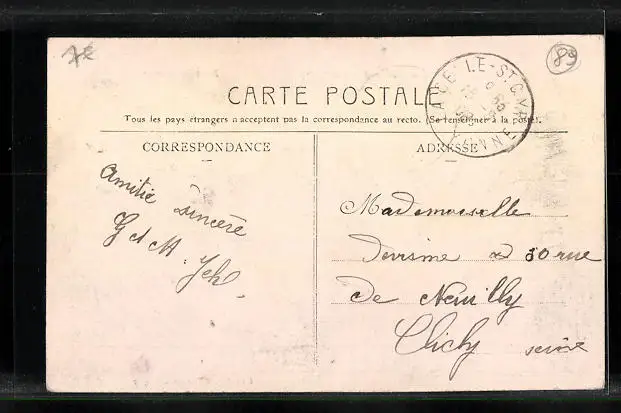 7€
89
CARTE POSTALE
Tous les pays étrangers n'acceptent pas la correspondance au recto. (Se renseigner à la poste).
CORRESPONDANCE
ADRESSE
Amitié
sincère
G et M
Mademoiselle
Devisme 30 rue
de Neuilly
Clichy seine